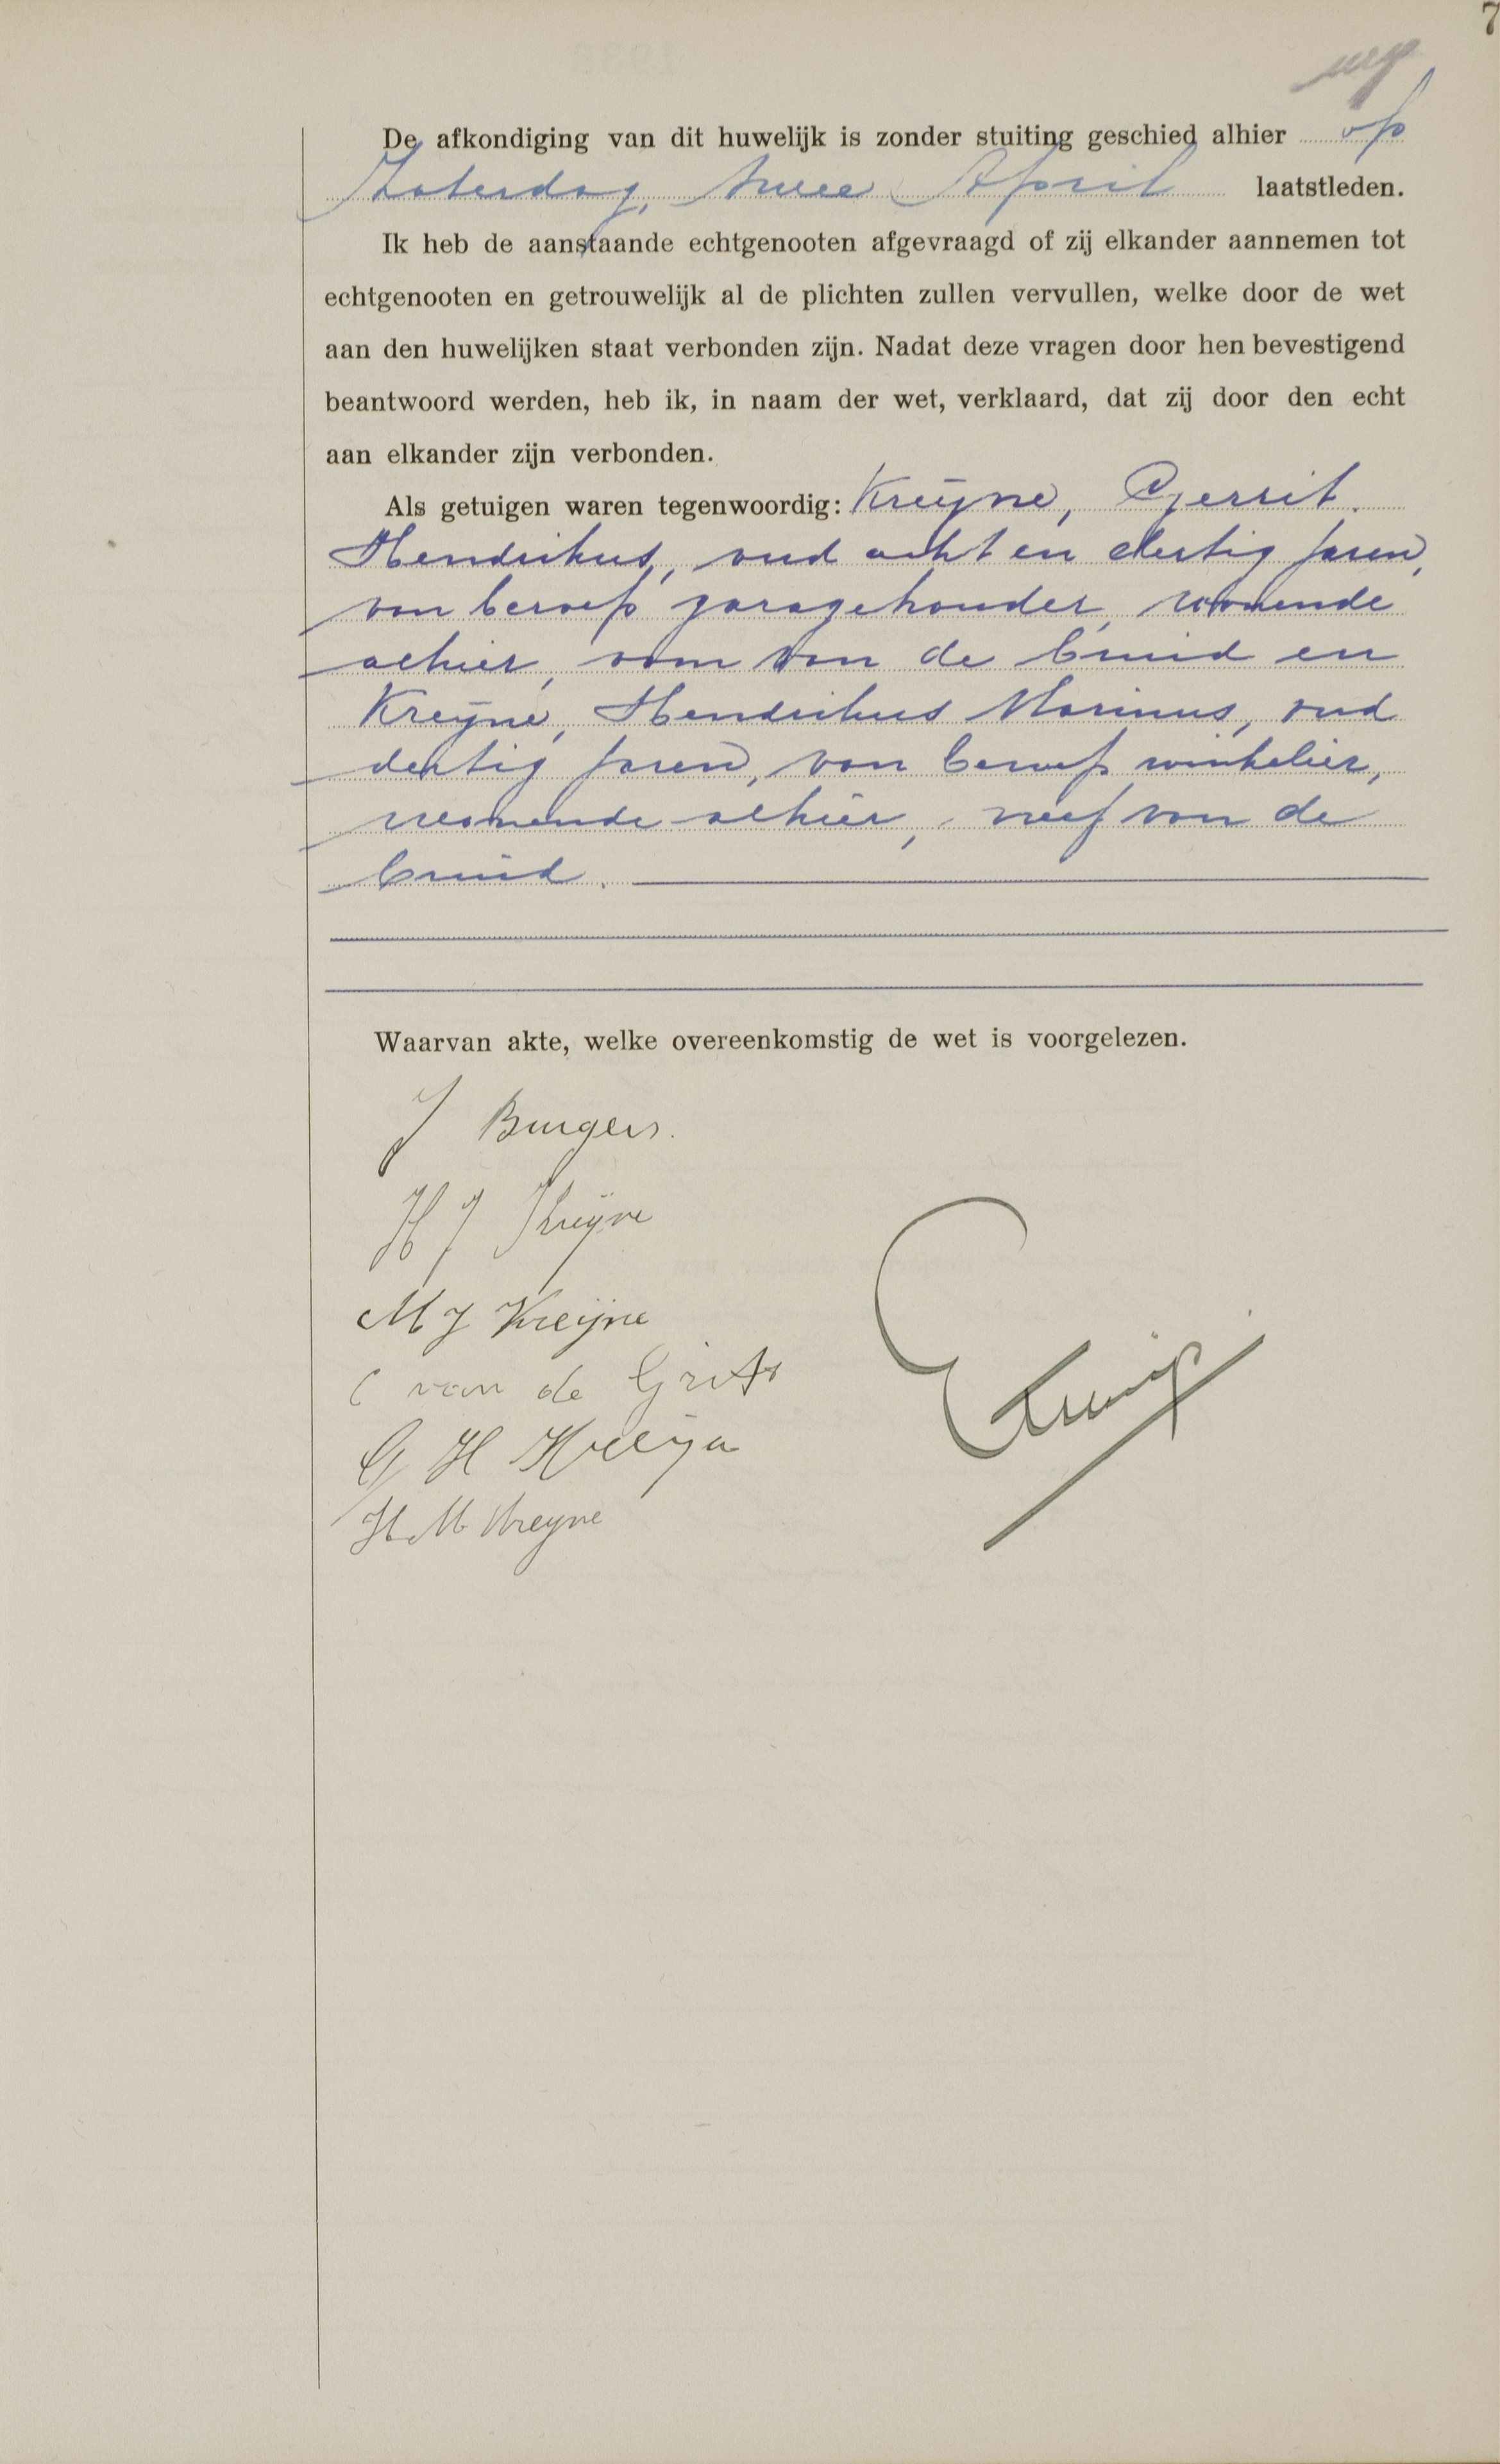 7
De afkondiging van dit huwelijk is zonder stuiting geschied alhier op
Zaterdag, twee April laatstleden.
Ik heb de aanstaande echtgenooten afgevraagd of zij elkander aannemen tot
echtgenooten en getrouwelijk al de plichten zullen vervullen, welke door de wet
aan den huwelijken staat verbonden zijn. Nadat deze vragen door hen bevestigend
beantwoord werden, heb ik, in naam der wet, verklaard, dat zij door den echt
aan elkander zijn verbonden.
Als getuigen waren tegenwoordig: Kreijne, Gerrit
Hendrikus, oud acht en dertig jaren,
van beroep garagehouder, wonende
alhier, oom van de bruid en
Kreijne, Hendrikus Marinus, oud
dertig jaren, van beroep winkelier,
wonende alhier, neef van de
bruid.
Waarvan akte, welke overeenkomstig de wet is voorgelezen.
J Burgers.
H J Kreijne
M J Kreijne
C van de
G H Kreijne
H M Kreyne